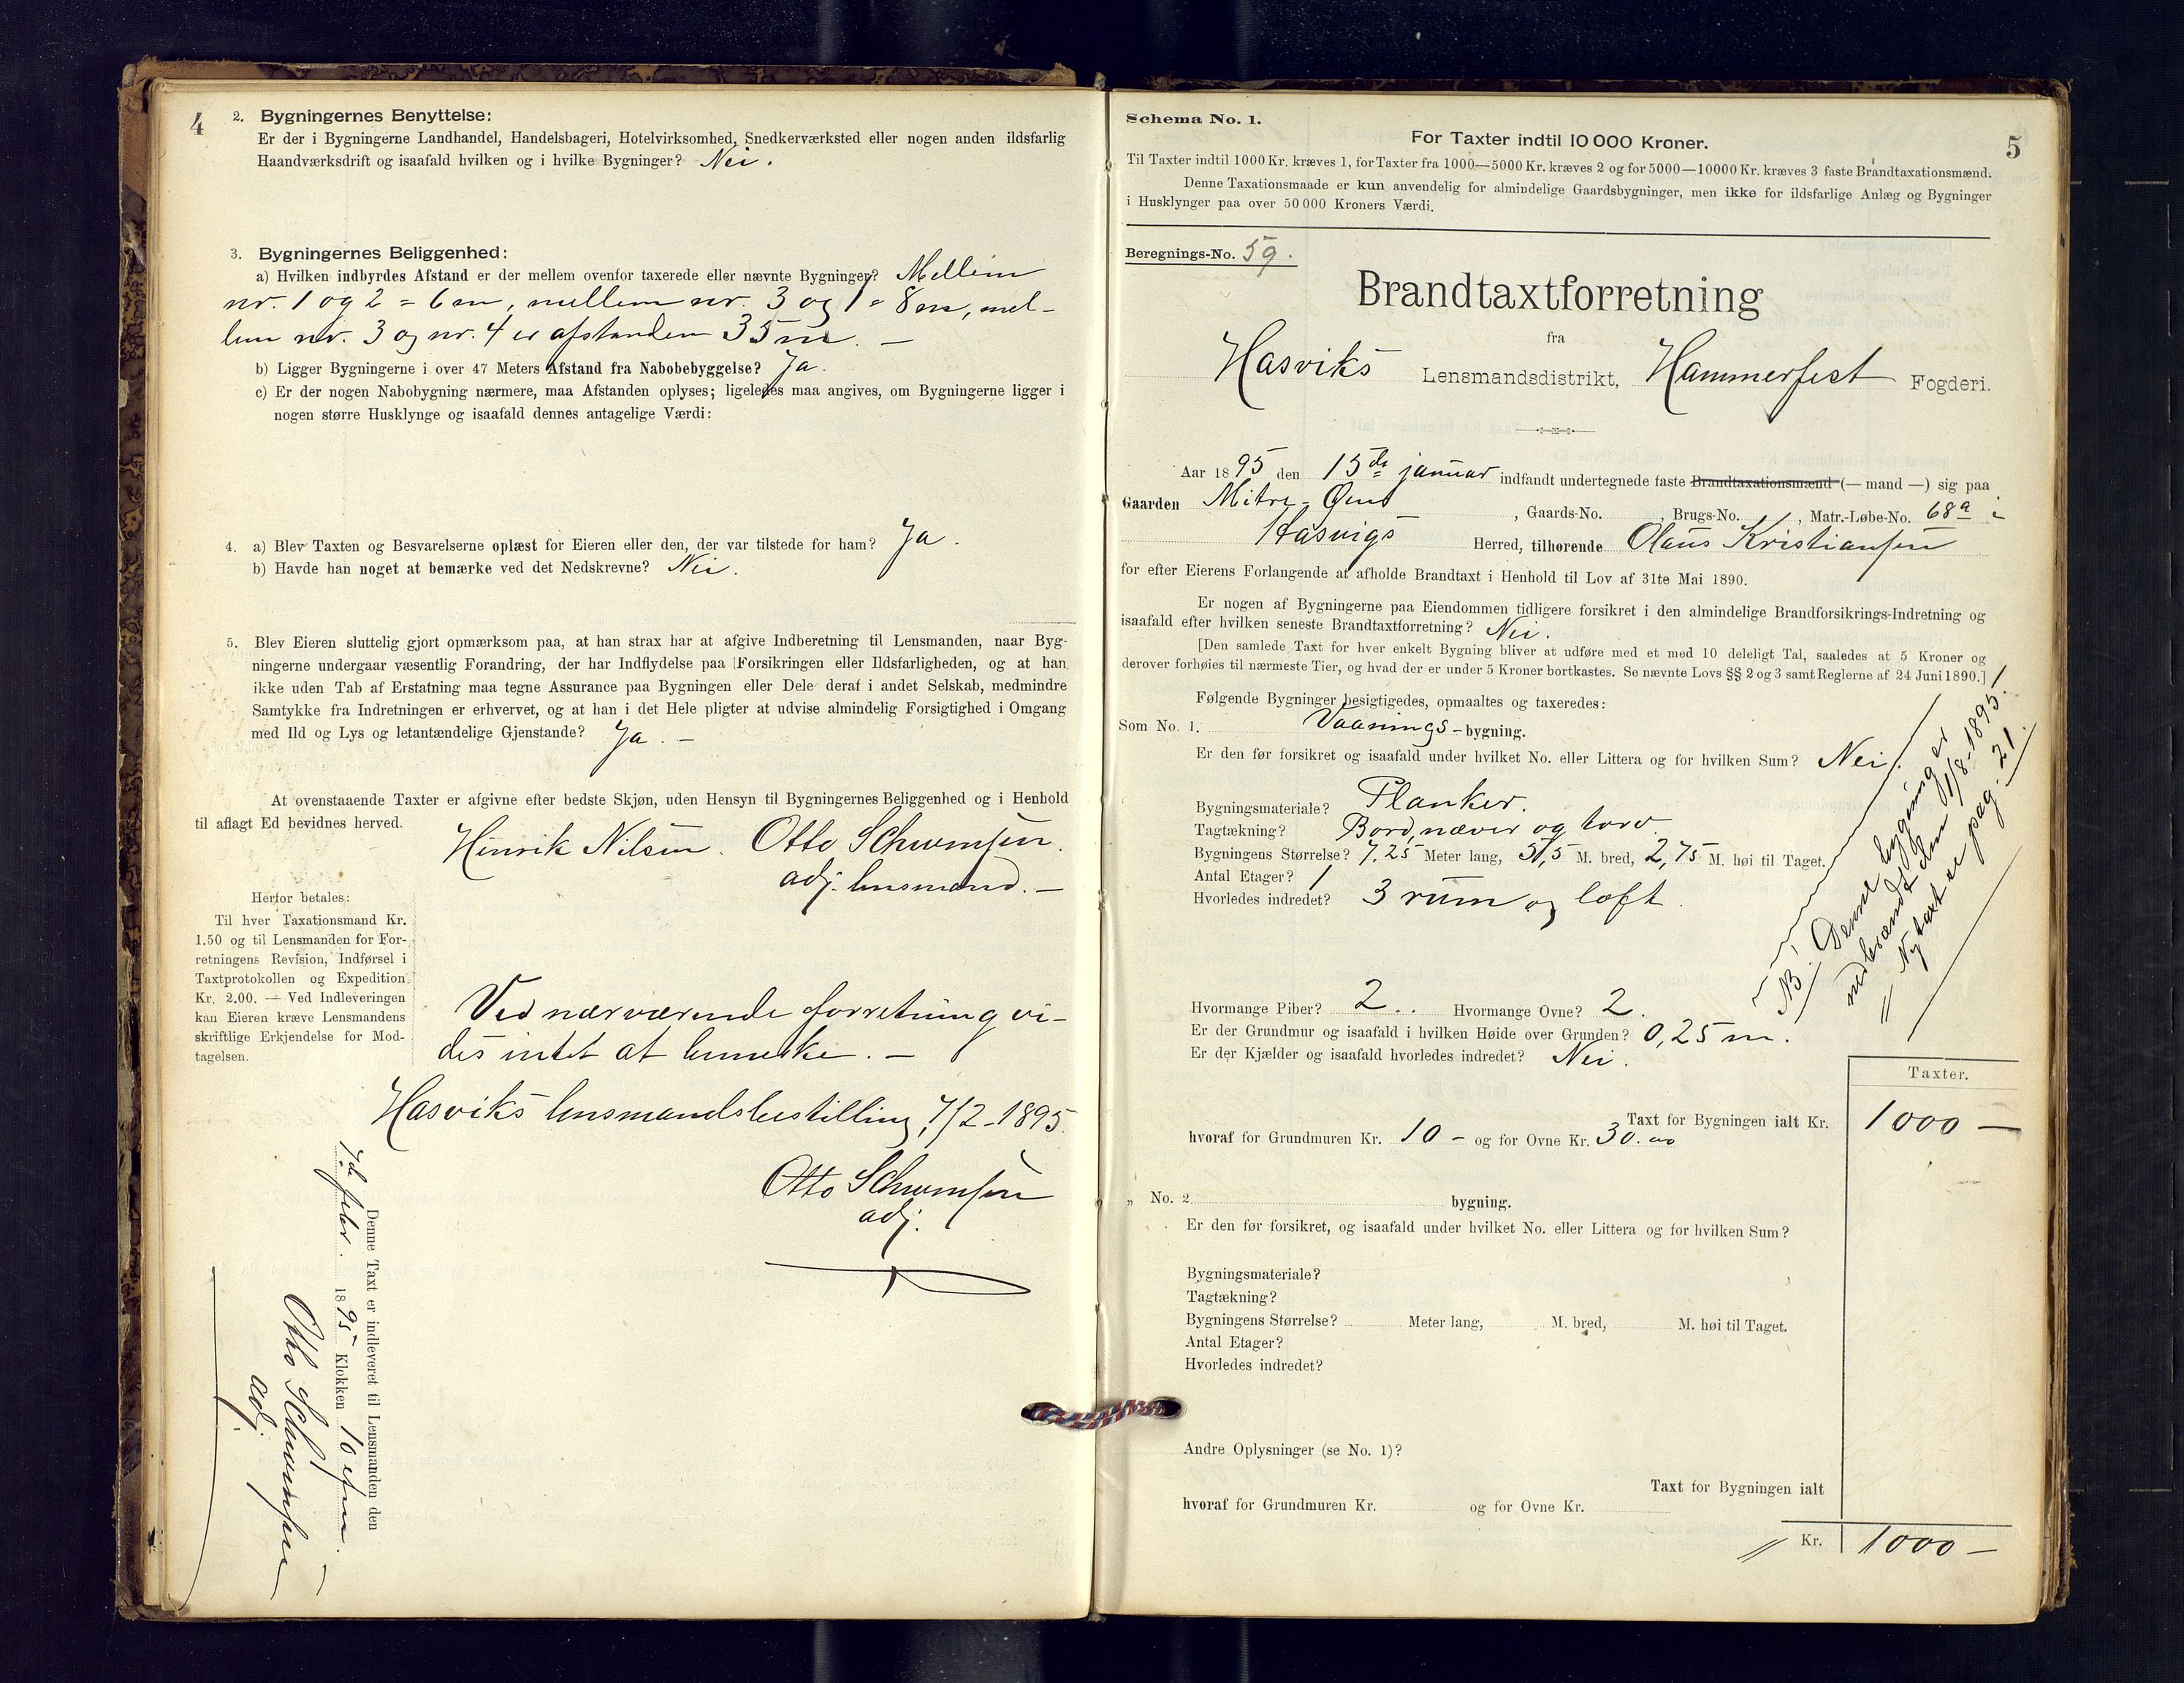 4
2. Bygningernes Benyttelse:
Er der i Bygningerne Landhandel, Handelsbageri, Hotelvirksomhed, Snedkerværksted eller nogen anden ildsfarlig
Haandværksdrift og isaafald hvilken og i hvilke Bygninger? Nei.
3. Bygningernes Beliggenhed:
a) Hvilken indbyrdes Afstand er der mellem ovenfor taxerede eller nævnte Bygninger? Mellem
nr. 1 og 2 = 6 m, mellem nr. 3 og 1 = 8 m, mel-
lem nr. 3 og nr. 4 er afstanden 35 m. —
b) Ligger Bygningerne i over 47 Meters Afstand fra Nabobebyggelse? Ja.
c) Er der nogen Nabobygning nærmere, maa Afstanden oplyses; ligeledes maa angives, om Bygningerne ligger i
nogen større Husklynge og isaafald dennes antagelige Værdi:
4. a) Blev Taxten og Besvarelserne oplæst for Eieren eller den, der var tilstede for ham? Ja.
b) Havde han noget at bemærke ved det Nedskrevne? Nei.
5. Blev Eieren sluttelig gjort opmærksom paa, at han strax har at afgive Indberetning til Lensmanden, naar Byg-
ningerne undergaar væsentlig Forandring, der har Indflydelse paa Forsikringen eller Ildsfarligheden, og at han
ikke uden Tab af Erstatning maa tegne Assurance paa Bygningen eller Dele deraf i andet Selskab, medmindre
Samtykke fra Indretningen er erhvervet, og at han i det Hele pligter at udvise almindelig Forsigtighed i Omgang
med Ild og Lys og letantændelige Gjenstande? Ja. —
At ovenstaaende Taxter er afgivne efter bedste Skjøn, uden Hensyn til Bygningernes Beliggenhed og i Henhold
til aflagt Ed bevidnes herved.
Henrik Nilsen. Otto
adj. lensmand. —
Herfor betales:
Til hver Taxationsmand Kr.
1.50 og til Lensmanden for For-
retningens Revision, Indførsel i
Taxtprotokollen og Expedition
Kr. 2.00. — Ved Indleveringen
kan Eieren kræve Lensmandens
skriftlige Erkjendelse for Mod-
tagelsen.
Ved nærværende forretning vi-
des intet at bemerke. —
Hasviks lensmandsbestilling, 7/2-1895
Otto
adj.
Denne Taxt er indleveret til Lensmanden den
7de febr. 1895 Klokken 10 efm.
Otto
adj.
5
Schema No. 1.
For Taxter indtil 10 000 Kroner.
Til Taxter indtil 1000 Kr. kræves 1, for Taxter fra 1000—5000 Kr. kræves 2 og for 5000—10000 Kr. kræves 3 faste Brandtaxationsmænd.
Denne Taxationsmaade er kun anvendelig for almindelige Gaardsbygninger, men ikke for ildsfarlige Anlæg og Bygninger
i Husklynger paa over 50 000 Kroners Værdi.
Beregnings-No. 59.
Brandtaxtforretning
fra
Hasviks Lensmandsdistrikt, Hammerfest Fogderi.
Aar 1895 den 15de januar indfandt undertegnede faste Brandtaxationsmænd (— mand —) sig paa
Gaarden , Gaards-No. , Brugs-No. , Matr.-Løbe-No. 68a i
Hasvigs Herred, tilhørende Olaus Kristiansen
for efter Eierens Forlangende at afholde Brandtaxt i Henhold til Lov af 31te Mai 1890.
Er nogen af Bygningerne paa Eiendommen tidligere forsikret i den almindelige Brandforsikrings-Indretning og
isaafald efter hvilken seneste Brandtaxtforretning? Nei.
[Den samlede Taxt for hver enkelt Bygning bliver at udføre med et med 10 deleligt Tal, saaledes at 5 Kroner og
derover forhøies til nærmeste Tier, og hvad der er under 5 Kroner bortkastes. Se nævnte Lovs §§ 2 og 3 samt Reglerne af 24 Juni 1890.]
Følgende Bygninger besigtigedes, opmaaltes og taxeredes:
Som No. 1. Vaanings-bygning.
Er den før forsikret og isaafald under hvilket No. eller Littera og for hvilken Sum? Nei.
Bygningsmateriale? Planker.
Tagtækning? Bord, næver og torv.
Bygningens Størrelse? 7,25 Meter lang, 5,5 M. bred, 2,75 M. høi til Taget.
Antal Etager? 1
Hvorledes indredet? 3 rum og loft.
NB! Denne bygning er
nedbrændt den 1/8-1895!
Ny taxt se pag. 21.
Hvormange Piber? 2.. Hvormange Ovne? 2.
Er der Grundmur og isaafald i hvilken Høide over Grunden? 0,25 m.
Er der Kjælder og isaafald hvorledes indredet? Nei.
Taxter.
Taxt for Bygningen ialt Kr. 1000 —
hvoraf for Grundmuren Kr. 10 - og for Ovne Kr. 30.00
„ No. 2. bygning.
Er den før forsikret, og isaafald under hvilket No. eller Littera og for hvilken Sum?
Bygningsmateriale?
Tagtækning?
Bygningens Størrelse? Meter lang, M. bred, M. høi til Taget.
Antal Etager?
Hvorledes indredet?
Andre Oplysninger (se No. 1)?
Taxt for Bygningen ialt
hvoraf for Grundmuren Kr. og for Ovne Kr.
Kr. 1000 —